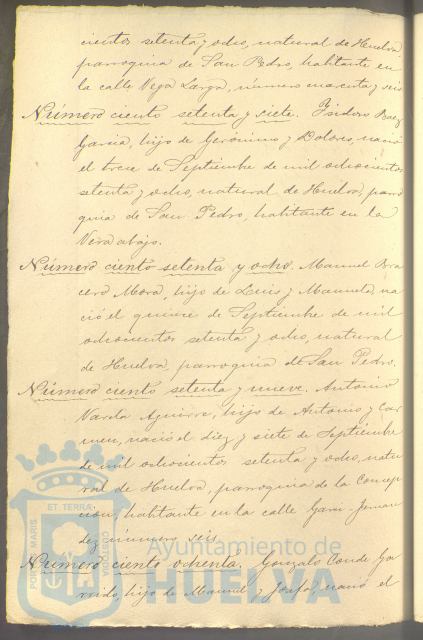 cientos setenta y ocho, natural de Huelva
parroquia de San Pedro, habitante en
la calle Vega Larga, número y seis
Número ciento setenta y siete. Isidoro
Garcia, hijo de Gerónimo y Dolores, nació
el trece de Septiembre de mil ochocientos
setenta y ocho, natural de Huelva, parro
quia de San Pedro, habitante en la
Vera abajo.
Número ciento setenta y ocho. Manuel Bra
cero Mora, hijo de Luis y Manuela, na
ció el quince de Septiembre de mil
ochocientos setenta y ocho, natural
de Huelva, parroquia de San Pedro.
Número ciento setenta y nueve. Antonio
Varela Aguirre, hijo de Antonio y Car
men, nació el diez y siete de Septiembre
de mil ochocientos setenta y ocho, natu
ral de Huelva, parroquia de la Concep
cion, habitante en la calle Garci-Fernan
dez número seis.
Número ciento ochenta. Gonzalo Conde Ga
rrido, hijo de Manuel y Josefa, nació el
PORTUS MARIS ET TERRAE CUSTODIA
Ayuntamiento de
HUELVA